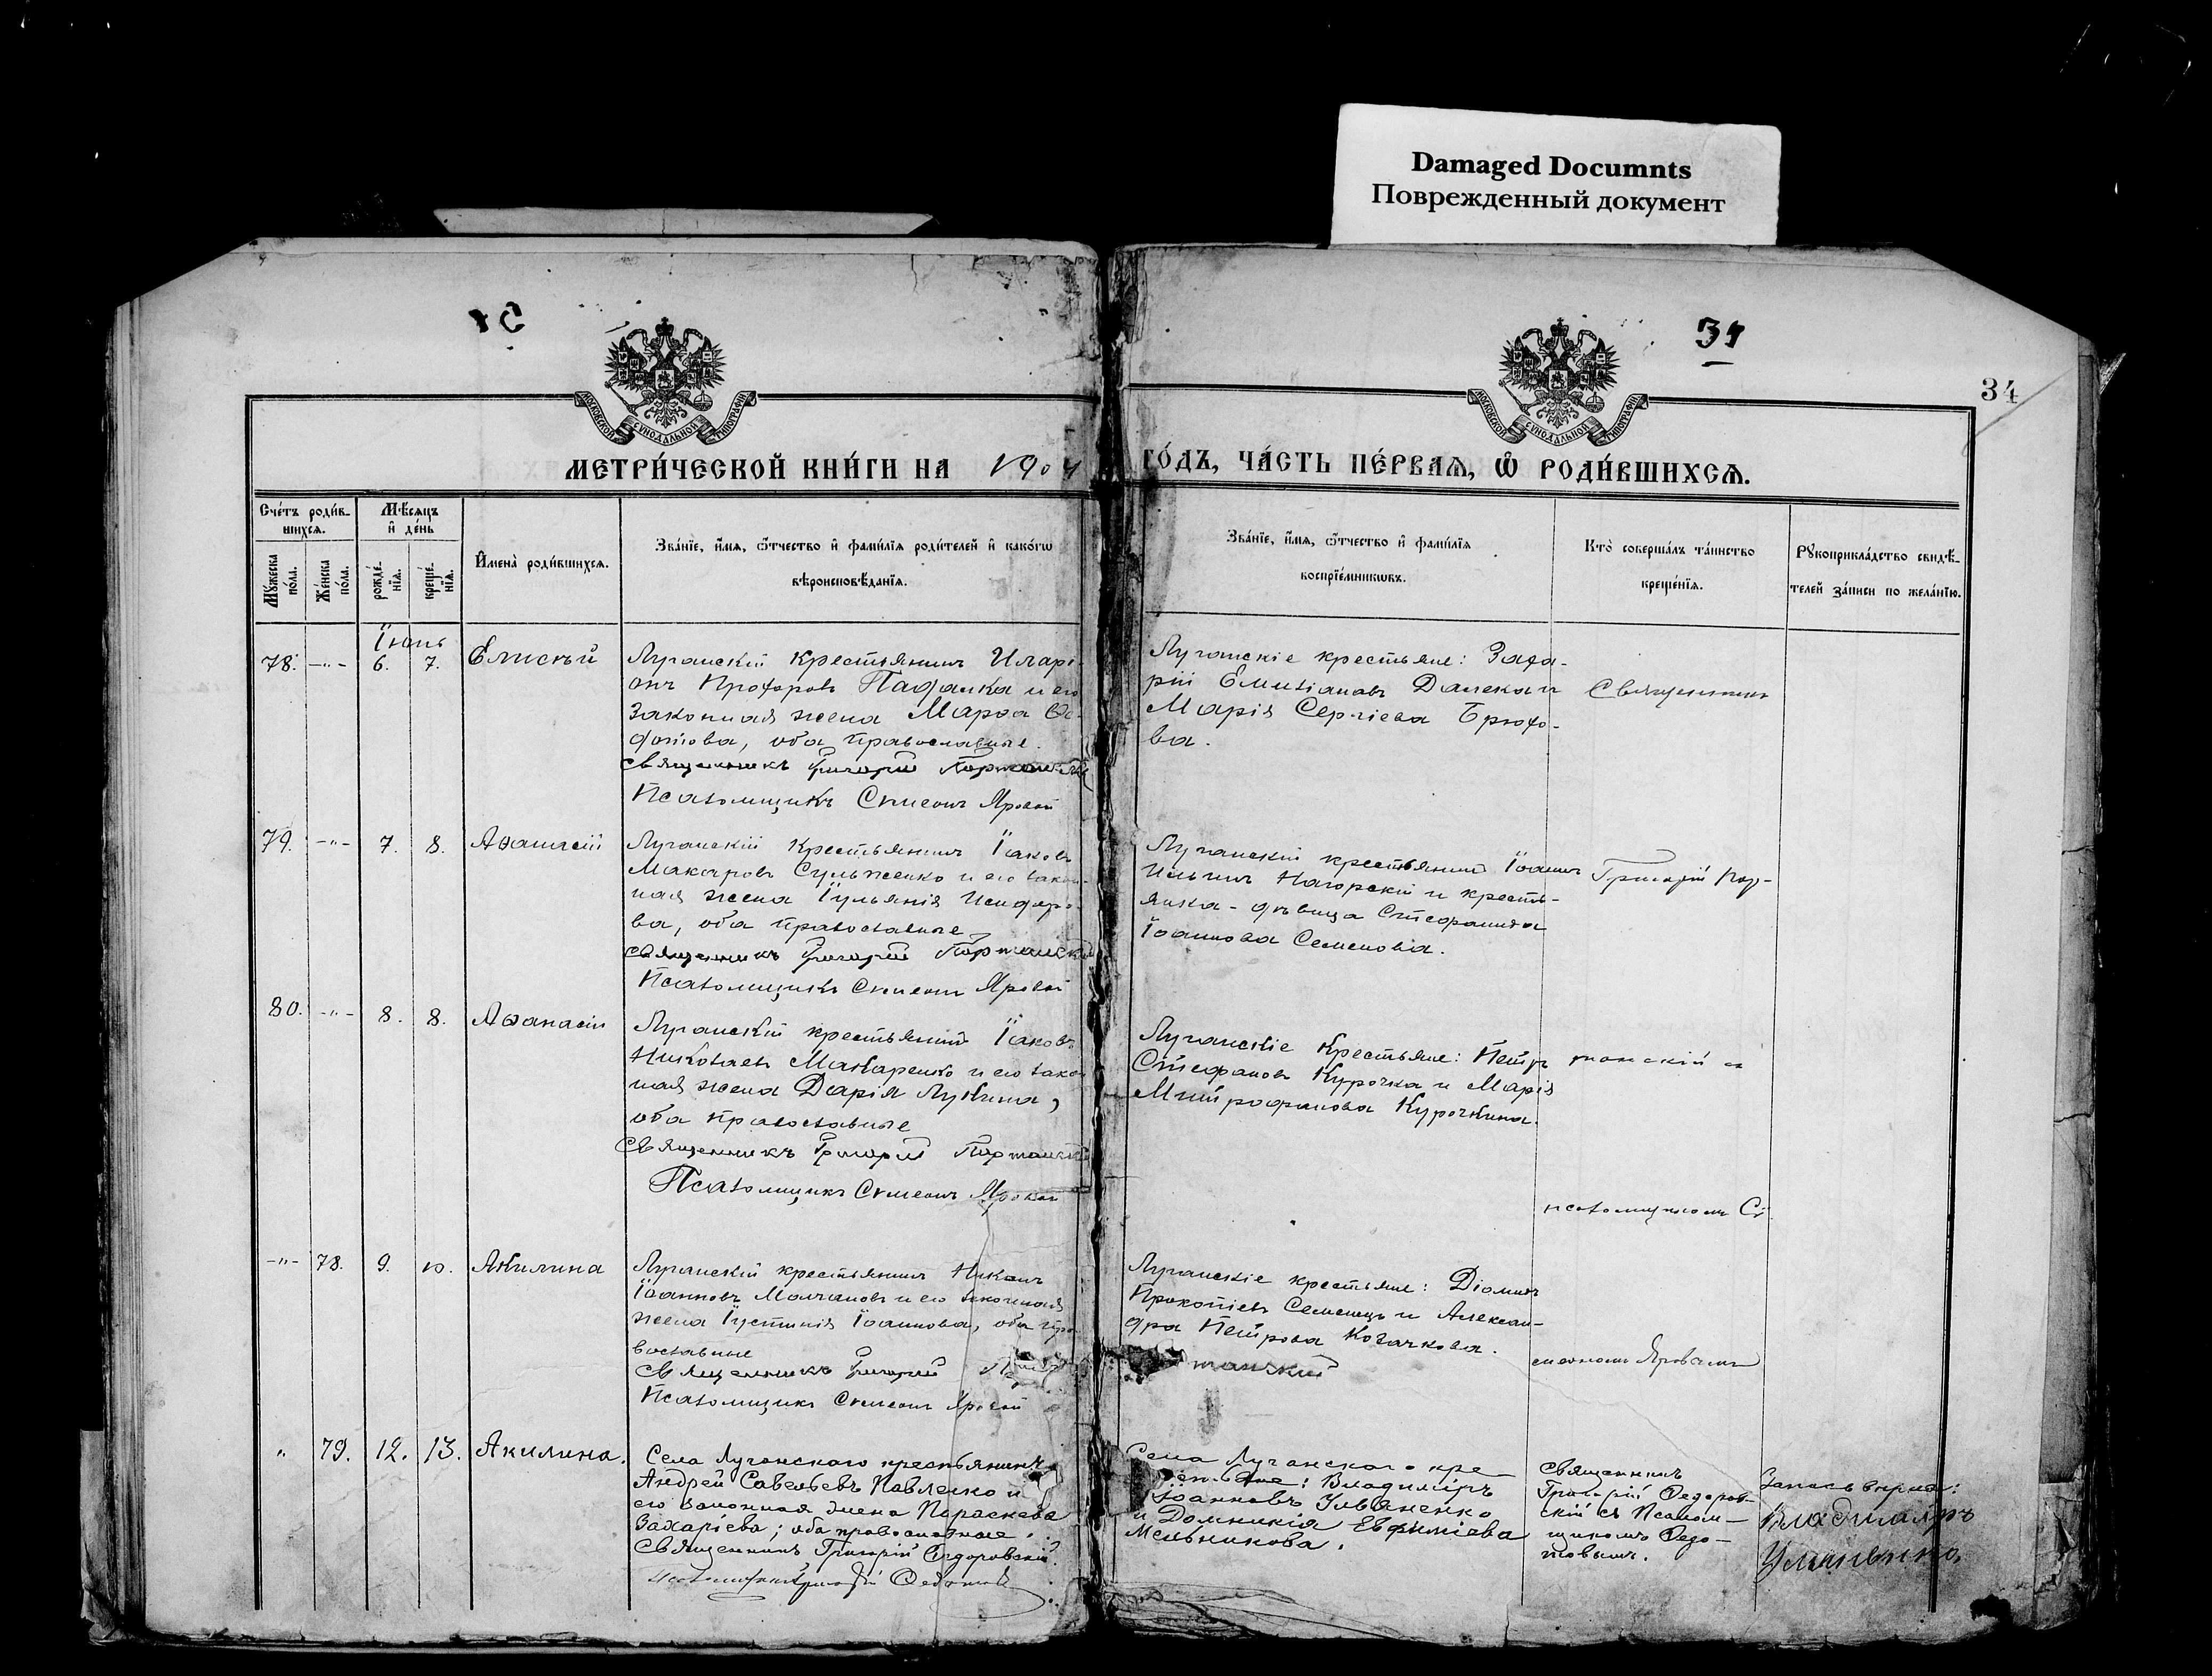 Damaged Documnts
Поврежденный документ
34
МОСКОВСКОЙ СѴНОДАЛЬНОЙ ТИПОГРАФІИ
МОСКОВСКОЙ СѴНОДАЛЬНОЙ ТИПОГРАФІИ
МЕТРИ́ЧЕСКОЙ КНИ́ГИ НА 1904 ГО́ДЪ, ЧА́СТЬ ПЕ́РВАѦ, Ѽ РОДИ́ВШИХСѦ.
Сче́тъ роди́в-
шихсѧ.
Мꙋ́жеска по́ла.
Же́нска по́ла.
Мѣ́сѧцъ
и҆ де́нь
рожде́-
нїѧ.
креще́-
нїѧ.
И҆мена̀ роди́вшихсѧ.
Зва́нїе, и҆́мѧ, ѻ҆́тчество и҆ фами́лїѧ роди́телей и҆ како́гѡ
вѣроисповѣ́данїѧ.
Зва́нїе, и҆́мѧ, ѻ҆́тчество и҆ фами́лїѧ
воспрїе́мникѡвъ.
Кто̀ соверша́лъ та́инство
креще́нїѧ.
Рꙋкоприкла́дство свидѣ́-
телей за́писи по жела́нїю.
Іюнь
78. -"- 6. 7. Елисѣй
Луганскій крестьянинъ Иларі-
онъ Прохоровъ и его
законная жена Марѳа Ѳе-
дотова, оба православные.
Священникъ Григорій Портанскій
Псаломщикъ Симеонъ Яровой
Луганскіе крестьяне: Заха-
рій Емиліановъ Далека и
Марія Сергіева Брюхо-
ва.
Священникъ
79. -"- 7. 8. Аѳанасій
Луганскій крестьянинъ Іаковъ
Макаровъ Сульженко и его закон-
ная жена Іуліанія Исидоро-
ва, оба православные
Священникъ Григорій Портанскій
Псаломщикъ Симеонъ Яровой
Луганскій крестьянинъ Іоаннъ
Ильинъ Нагорскій и кресть-
янка - дѣвица Стефанида
Іоаннова Семенова.
Григорій Пор-
80. -"- 8. 8. Аѳанасій
Луганскій крестьянинъ Іаковъ
Николаевъ Макаренко и его закон-
ная жена Дарія Лукина,
оба православные
Священникъ Григорій Портанскій
Псаломщикъ Симеонъ Яровой
Луганскіе крестьяне: Петръ
Стефановъ Курочка и Марія
Митрофанова Курочкина.
танскій съ
псаломщикомъ Си-
-"- 78. 9. 10. Акилина
Луганскій крестьянинъ Никонъ
Іоанновъ Молчановъ и его законная
жена Іустинія Іоаннова, оба пра-
вославные
Священникъ Григорій Портанскій
Псаломщикъ Симеонъ Яровой
Луганскіе крестьяне: Діомидъ
Прокопіевъ Семенецъ и Алексан-
дра Петрова Козачкова.
меономъ Яровымъ
" 79. 12. 13. Акилина.
Села Луганского крестьянинъ
Андрей Савельевъ Павленко и
его законная жена Параскева
Захаріева; оба православные.
Священникъ Григорій Ѳедоровскій.
Псаломщикъ Ѳедотовъ
Села Луганского кре-
стьяне: Владиміръ
Іоанновъ Ульяненко
и Домникія Евфиміева
Мельникова.
Священникъ
Григорій Ѳедоров-
скій съ Псалом-
щикомъ Ѳедо-
товымъ.
Запись вѣрна:
Владиміръ
Ульяненко.